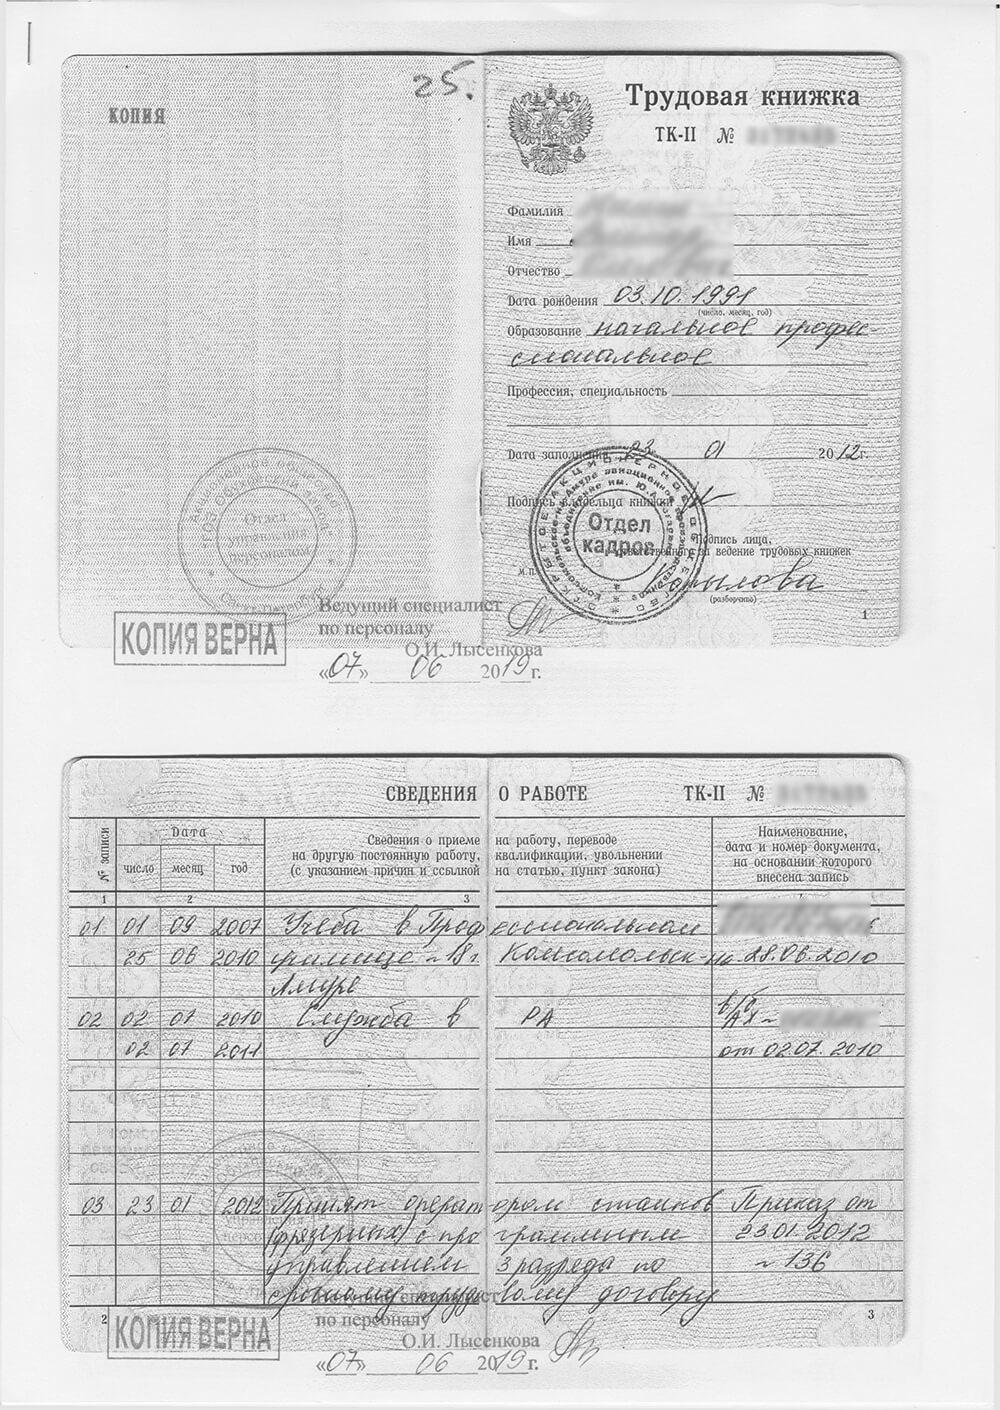 25.
КОПИЯ
Трудовая книжка
ТК-II №
Фамилия
Имя
Отчество
Дата рождения 03.10.1991
(число, месяц, год)
Образование начальное профес-
сиональное
Профессия, специальность
Дата заполнения 23 01 2012г.
Подпись владельца книжки
Отдел
кадров
Подпись лица,
ответственного за ведение трудовых книжек
М.П.
(разборчиво)
1
Отдел
управления
персоналом
Санкт-Петербург
КОПИЯ ВЕРНА
Ведущий специалист
по персоналу
О.И. Лысенкова
«07» 06 2019г.
СВЕДЕНИЯ О РАБОТЕ ТК-II №
№ записи
Дата
число месяц год
Сведения о приеме на работу, переводе
на другую постоянную работу, квалификации, увольнении
(с указанием причин и ссылкой на статью, пункт закона)
Наименование,
дата и номер документа,
на основании которого
внесена запись
1 2 3
01 01 09 2007 Учеба в Профессиональном
25 06 2010 училище №18 г. Комсомольск-на- 28.06.2010
Амуре
02 02 07 2010 Служба в РА в/б АХ №
02 07 2011 от 02.07.2010
03 23 01 2012 Принят оператором станков Приказ от
(фрезерных) с программным 23.01.2012
управлением 3 разряда по № 136
срочному трудовому договору
2
3
КОПИЯ ВЕРНА
Ведущий специалист
по персоналу
О.И. Лысенкова
«07» 06 2019г.